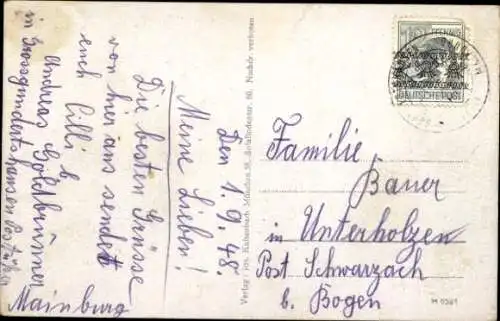 Den 1.9.48.
Meine Lieben!
Die besten Grüsse
von hier aus sendet
euch Cilli
b. Andreas Goldbrunner
in
Mainburg
Verlag: Jos. München Nachdr. verboten
PFENNIG
DEUTSCHE POST
Familie
Bauer
in Unterholzen
Post Schwarzach
b. Bogen